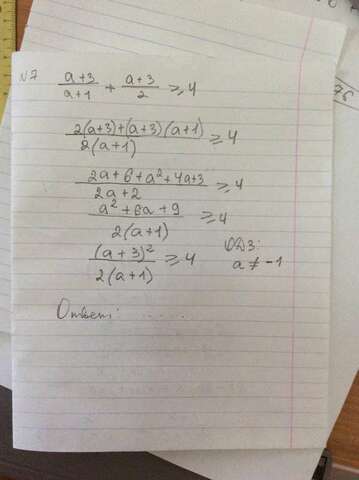 N7 (a+3)/(a+1) + (a+3)/2 ≥ 4
(2(a+3)+(a+3)(a+1))/(2(a+1)) ≥ 4
(2a+6+a²+4a+3)/(2a+2) ≥ 4
(a²+6a+9)/(2(a+1)) ≥ 4
(a+3)²/(2(a+1)) ≥ 4
ОДЗ:
a ≠ -1
Ответ: ......